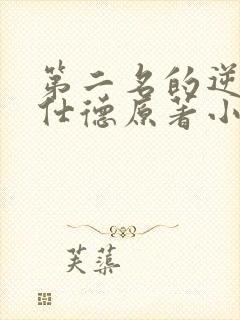 第二名的逆
仕德原著小
芙蕖